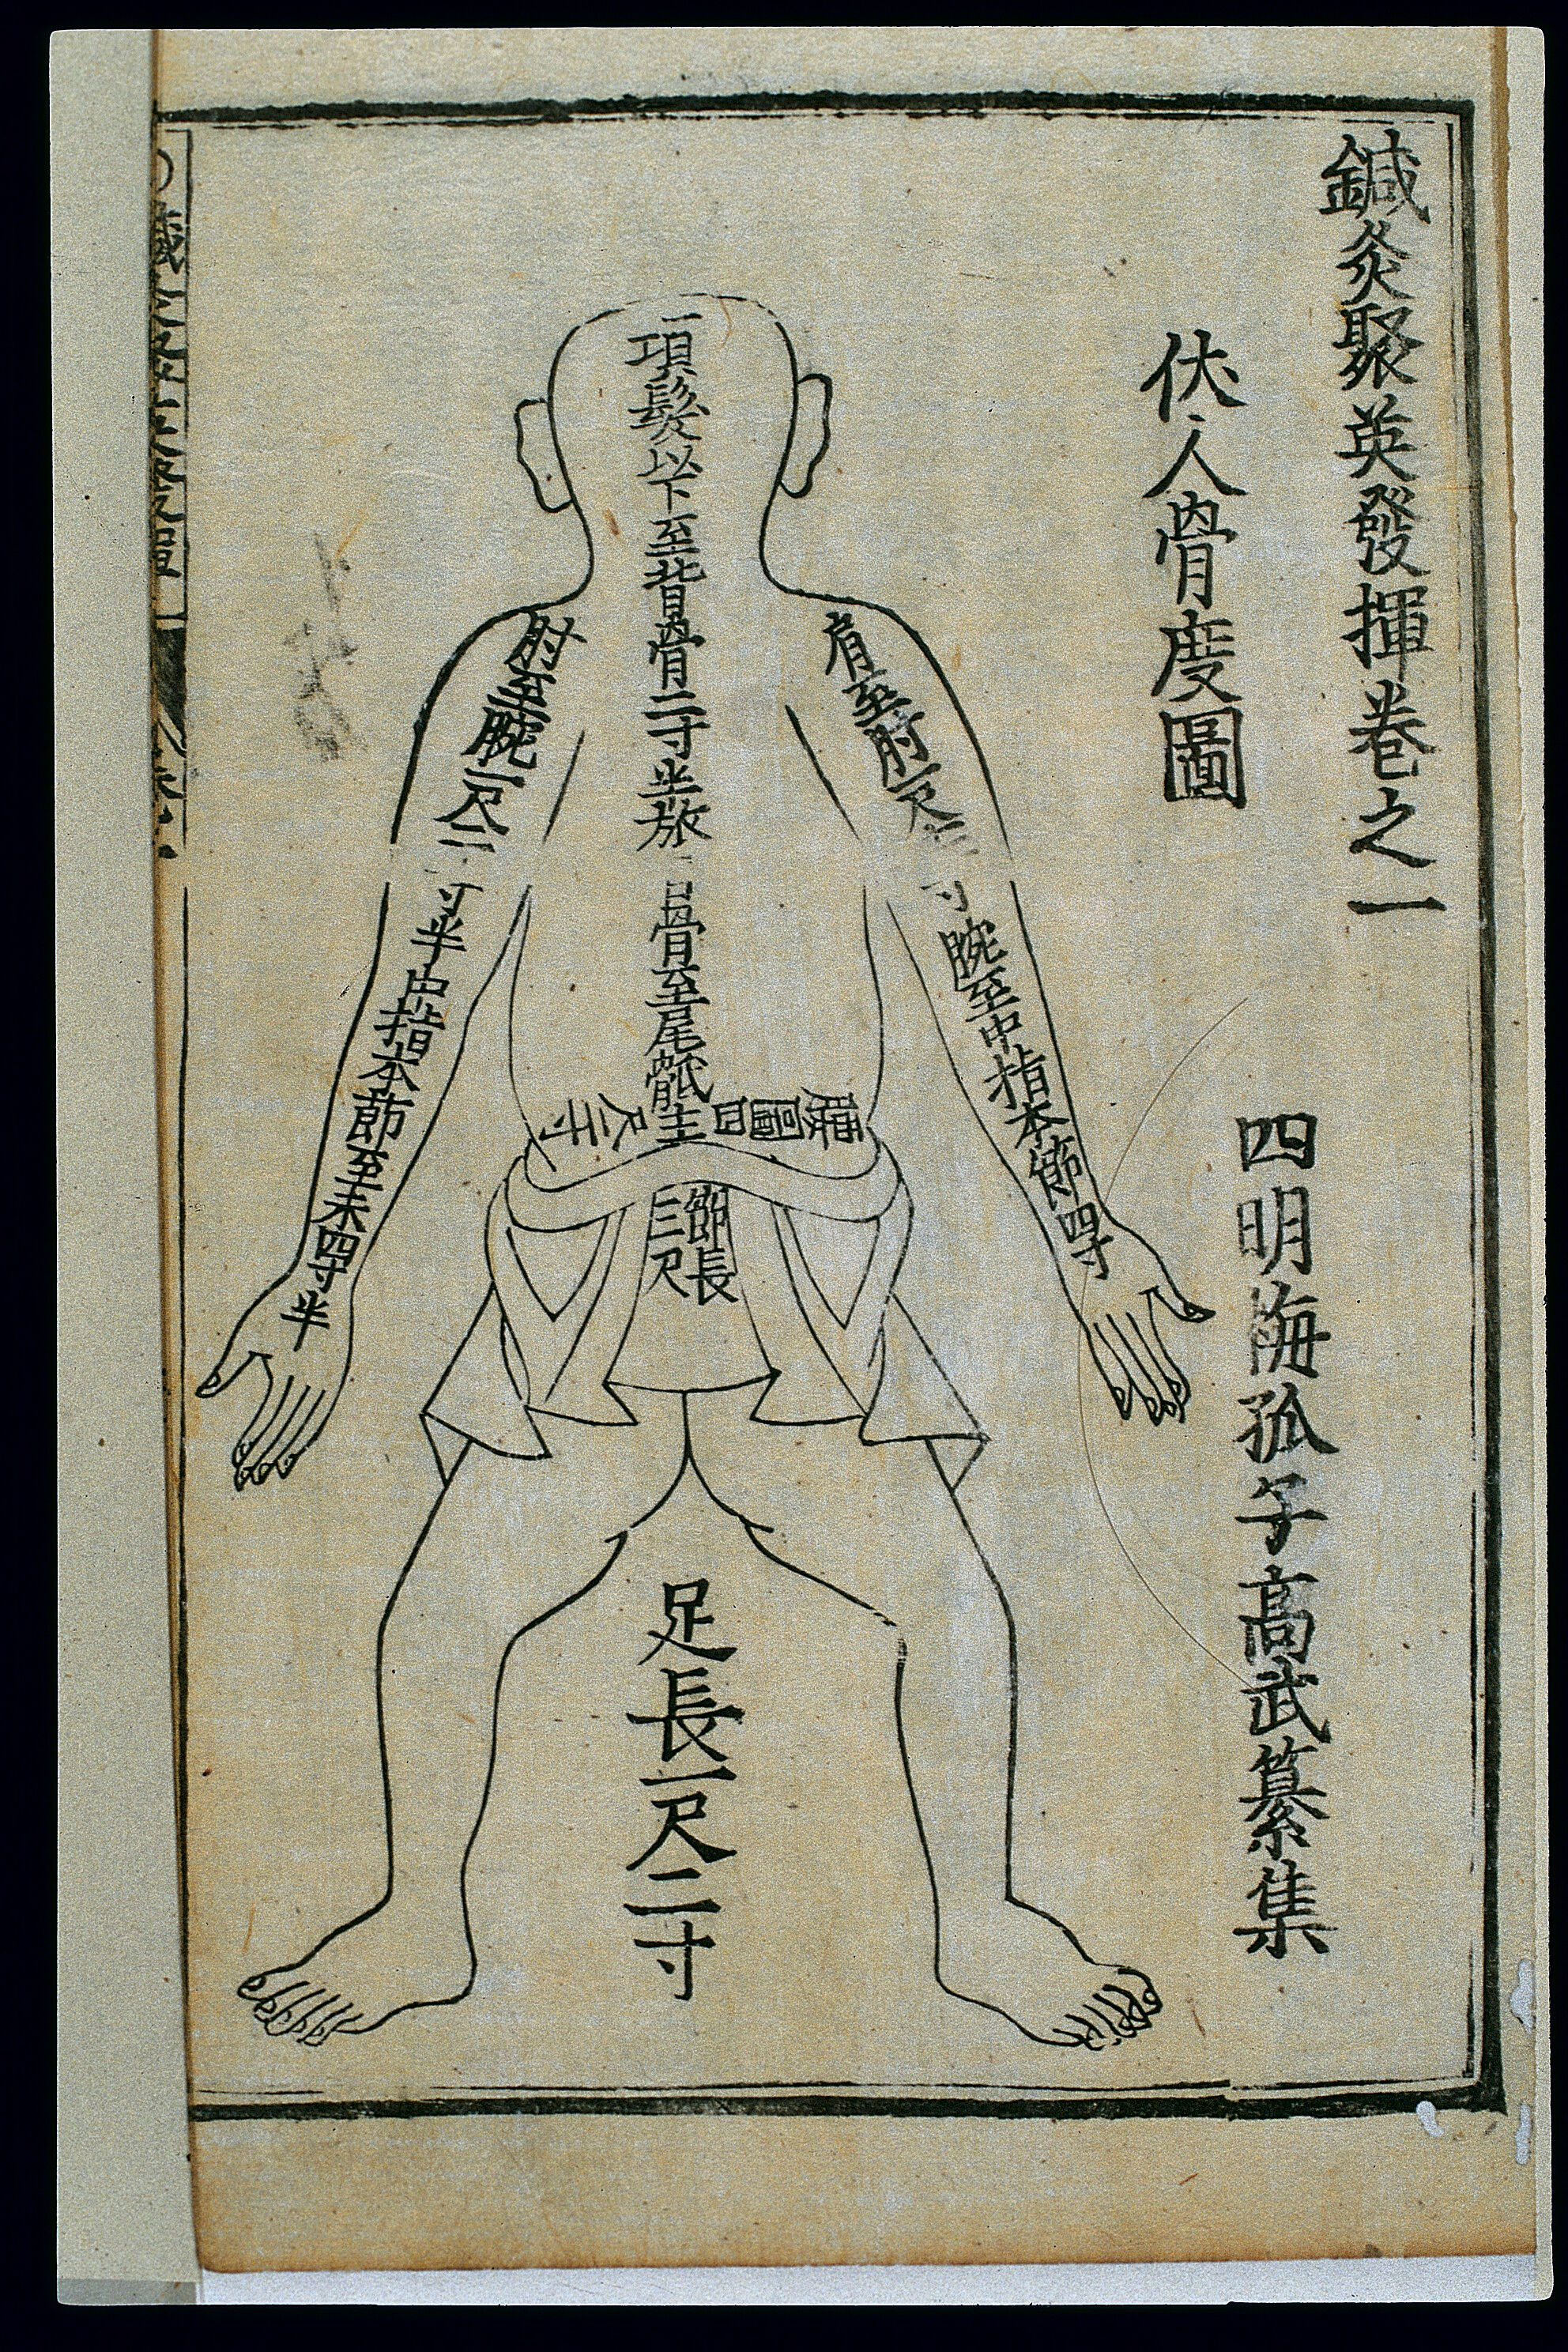 鍼灸聚英發揮卷之一
伏人骨度圖
四明梅孤子高武纂集
項髮以下至背骨二寸半
骨至尾骶
二十一
節長
三尺
腰圍四尺二寸
肩至肘一尺
寸腕至中指本節四寸
肘至腕一尺二寸半中指本節至末四寸半
足長一尺二寸